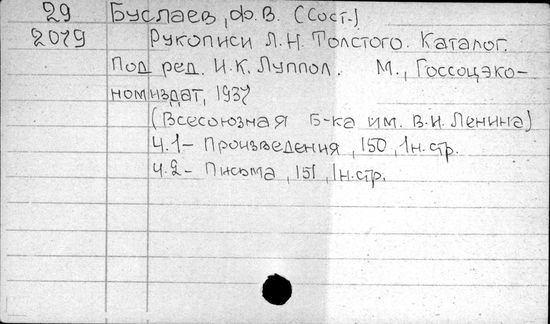 29 Буслаев, Ф.В. (Сост.)
2079 Рукописи Л.Н. Толстого. Каталог.
Под ред. И.К. Луппол. М., Госсоцэко-
номиздат, 1937
(Всесоюзная Б-ка им. В.И. Ленина)
Ч.1 - Произведения, 150, 1н.стр.
Ч.2 - Письма, 151, 1н.стр.